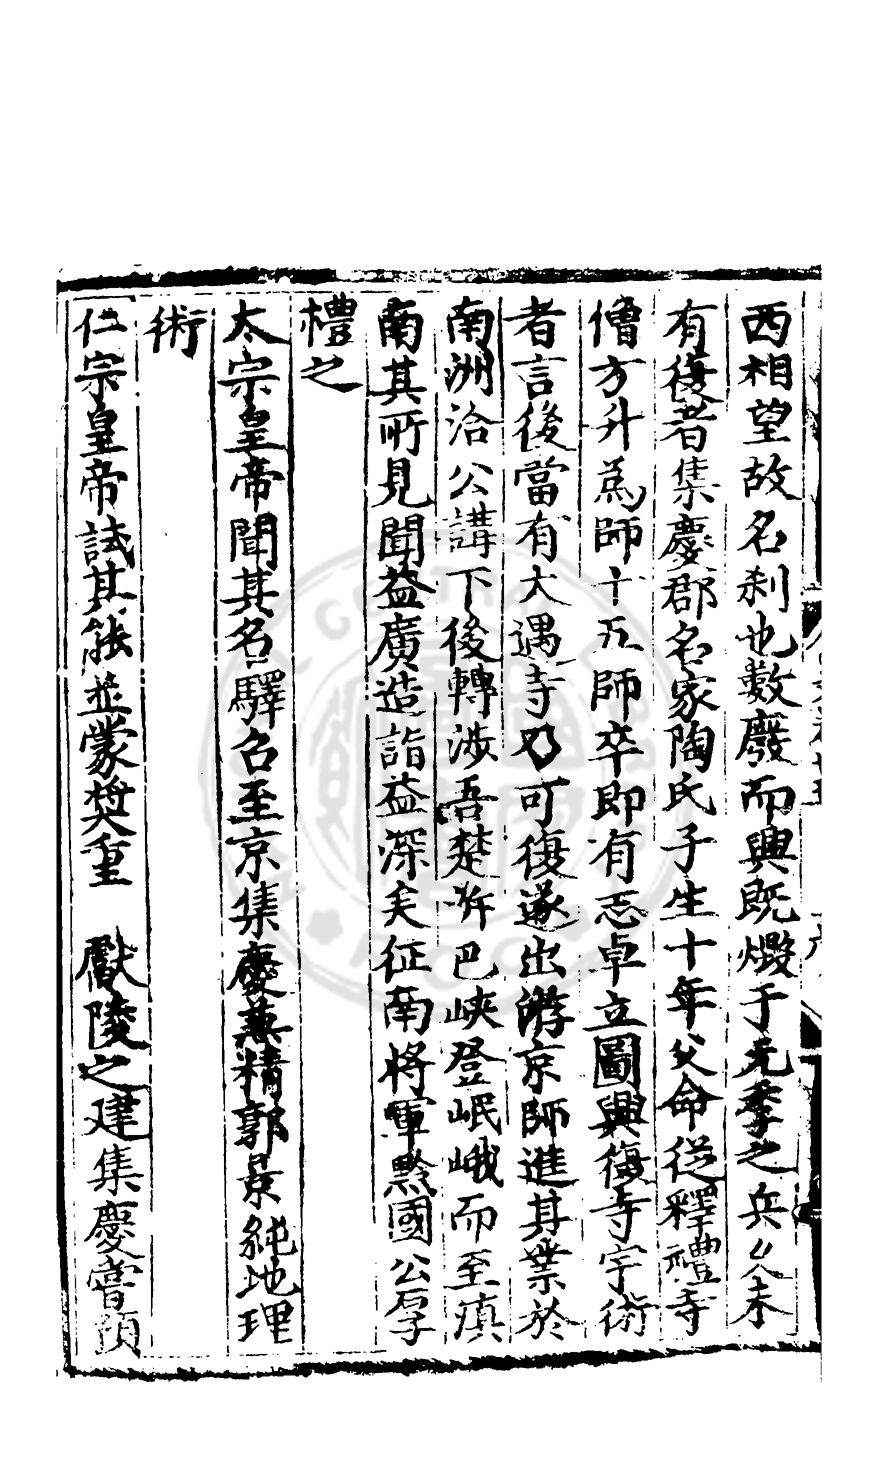 西相望故名刹也數廢而興既燬于元季之兵久未
有復者集慶郡名家陶氏子生十年父命從釋禮寺
僧方升為師十五師卒即有志卓立圖興復寺宇術
者言後當有大遇寺乃可復遂出游京師進其業於
南洲洽公講下後轉涉吾楚泝巴峽登岷峨而至滇
南其所見聞益廣造詣益深矣征南將軍黔國公厚
禮之
太宗皇帝聞其名驛召至京集慶兼精郭景純地理
術
仁宗皇帝試其能並蒙奬重 獻陵之建集慶嘗預